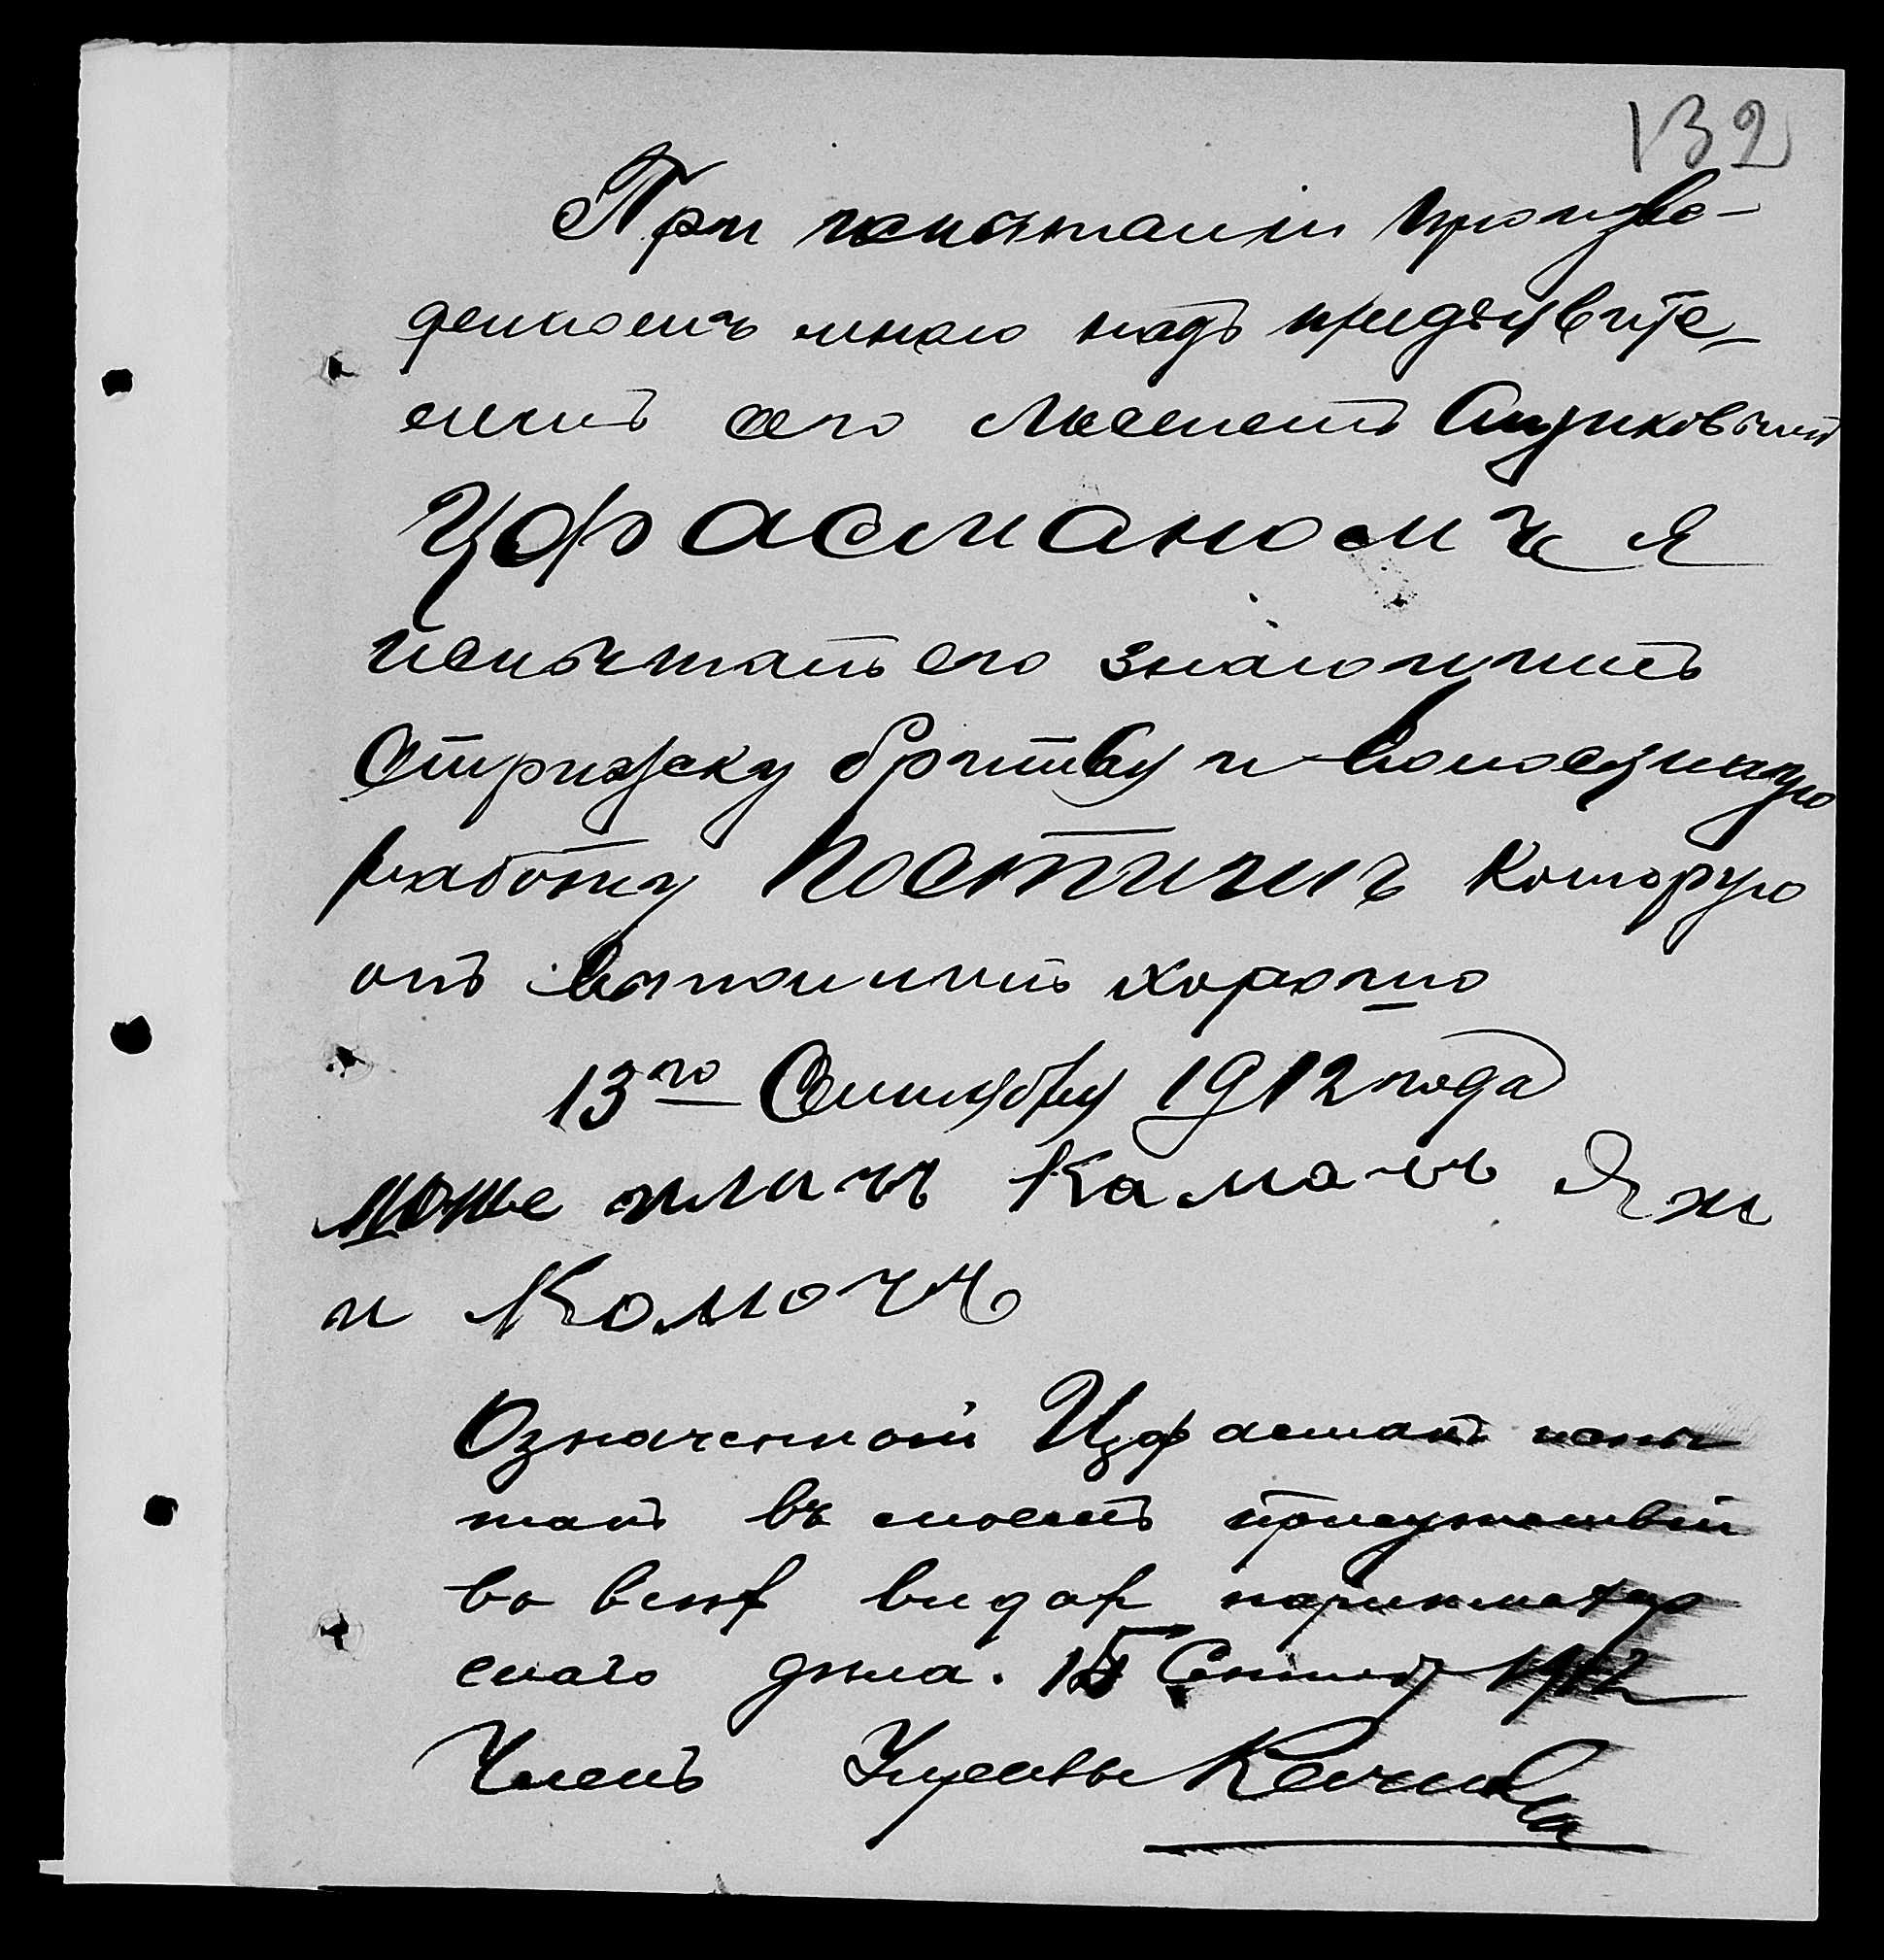 132
При испытании произве-
денномъ мною надъ предъявите-
лемъ сего Мееромъ
Цфасманомъ я
испытать его знающимъ
Стрижку бритву и волосяную
работу Постичъ которую
онъ выполнилъ хорошо
13го Сентября 1912 года
Камачъ
и Комочъ
Означенной Цфасманъ испы
танъ въ моемъ присутствіи
во всѣхъ видахъ парикмахер
скаго дѣла. 15 Сентяб 1912
Членъ Управы